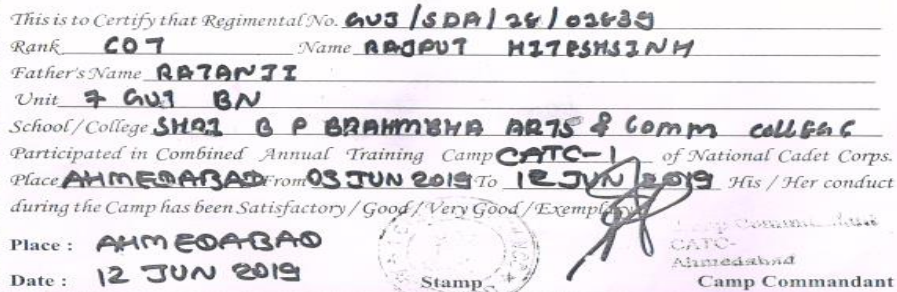 This is to Certify that Regimental No. GUJ/SDA/28/02839
Rank CDT Name RAJPUT HITESHSINH
Father's Name RATANJI
Unit 7 GUJ BN
School/College SHRI B P BRAHMBHA ARTS & Comm COLLEGE
Participated in Combined Annual Training Camp CATC-1 of National Cadet Corps.
Place AHMEDABAD From 03 JUN 2019 To 12 JUN 2019 His / Her conduct
during the Camp has been Satisfactory / Good / Very Good / Exemplary
Camp Commandant
Place : AHMEDABAD CATC-
Ahmedabad
Date : 12 JUN 2019 Stamp Camp Commandant